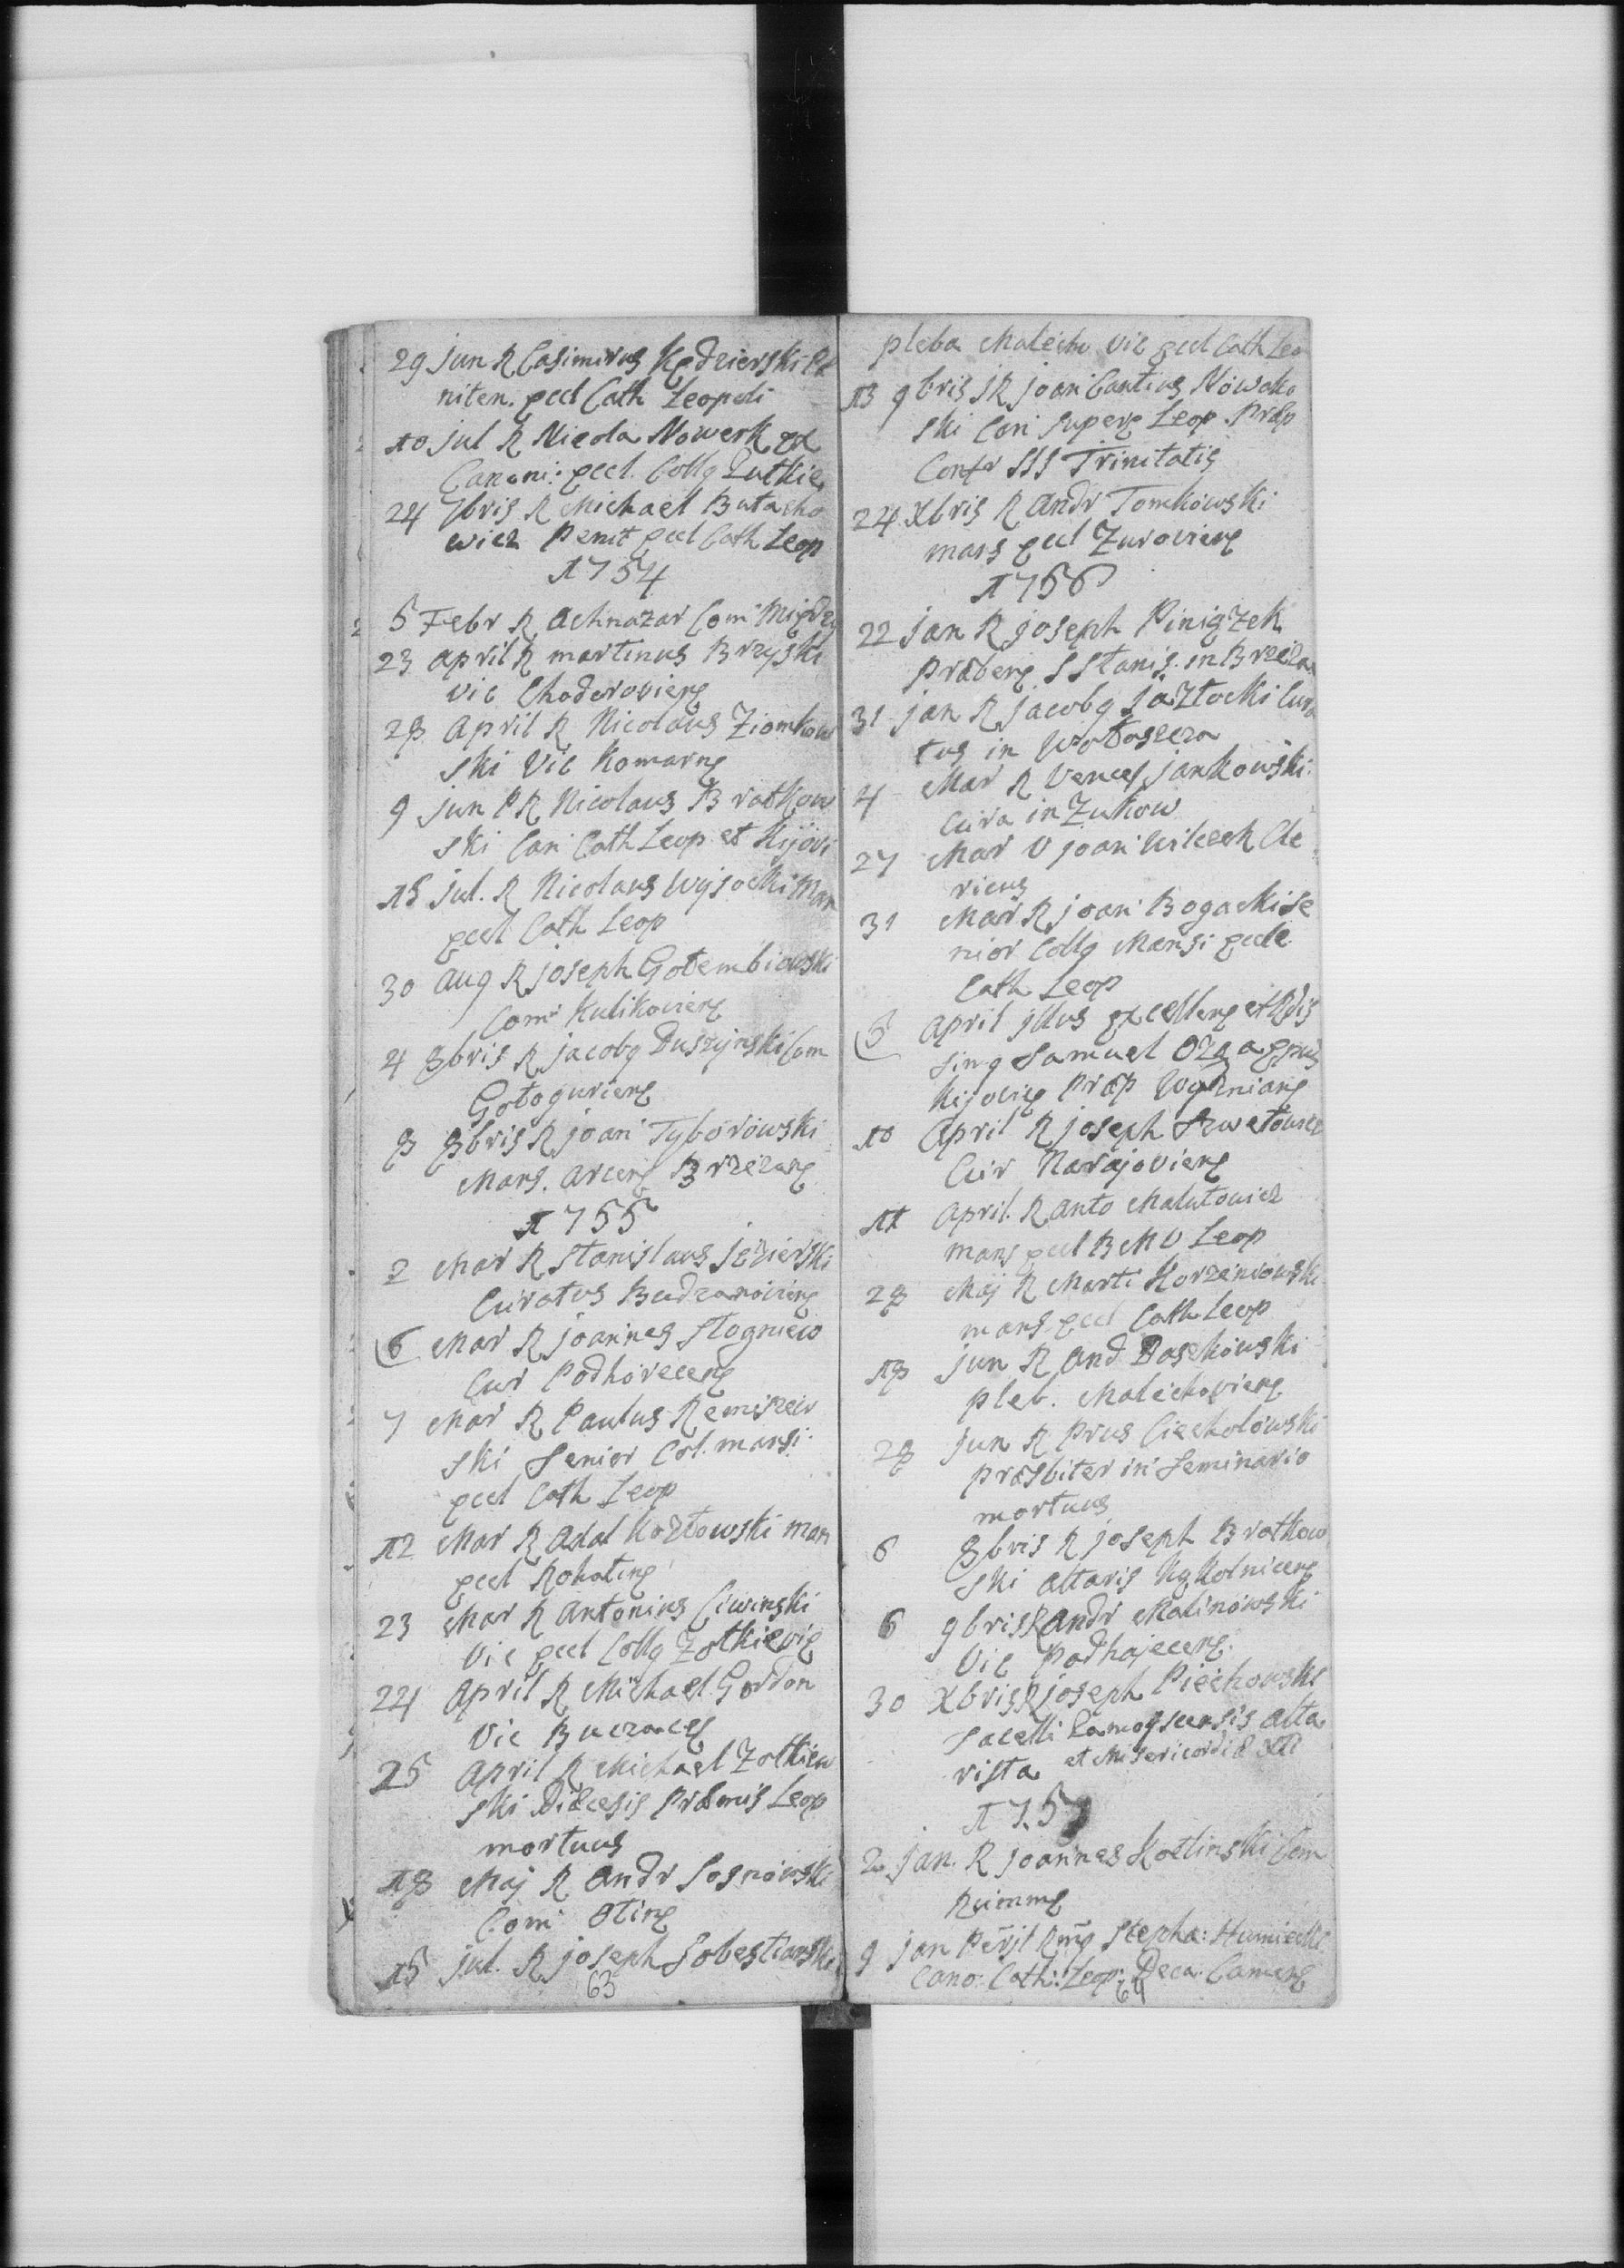 29 Jun R Casimirus Kędzierski Pæ
niten. Eccl Cath Leopoli
10 Jul R Nicola Nowerk ex
Canoni: Eccl. Collg Zutkie
24 7bris R Michael Butacho
wicz Penit Eccl Cath Leop
1754
5 Febr R Achnazar Com
23 April R Martinus Brzyski
Vic Chodoroviens
28 April R Nicolaus Ziomkow
ski Vic Komarns
9 Jun PR Nicolaus Bratkow
ski Can Cath Leop et Kijovi
15 Jul. R Nicolaus Wysocki Man
Eccl Cath Leop
30 Aug R Joseph Gołembiowski
Com Kulikoviens
4 8bris R Jacobg Duszynski Com
Gołoguriens
8 8bris R Joan Tyborowski
Mans. Arcens Brzezans
1755
2 Mar R Stanislaus Jezierski
Curatus Budzanoviens
6 Mar R Joannes Stogniew
Cur Podhorecens
7 Mar R Paulus Remiszew
ski Senior Col. mansi:
Eccl Cath Leop
12 Mar R Adal Kozłowski man
Eccl Rohatins
23 Mar R Antonius Ciwinski
Vic Eccl Collg Zołkievie
24 April R Michael Gordon
Vic Buczaces
25 April R Michael Zołkiew
ski Diæcesis Præmis Leop
mortuus
18 Maj R Andr Sosnowski
Com Otins
15 Jul. R Joseph Sobestianski
63
pleba Malech Vic Eccl Cath Leo
13 9bris JR Joan Cantius Nowako
ski Can Supers Leop. Præp
Confr SSS Trinitatis
24 Xbris R Andr Tomkowski
mans Eccl Zuroviens
1756
22 Jan R Joseph Piniązek
Præbens S Stanis. in Brzeza
31 Jan R Jacobg Jazłocki Cura
tus in Wołoszcza
4 Mar R Vences Jankowski:
Cura in Zukow
27 Mar V Joan Wilczek Cle
ricus
31 Mar R Joan Bogacki Se
nior Collg Mansi Eccle
Cath Leop
6 April Illus Excellens et Rdis
simg Samuel Ozga Epus
Kijovie Præp Wyzniane
10 April R Joseph Szwetowicz
Cur Narajoviens
11 April. R Anto Malutowicz
mans Eccl B M V Leop
28 Maj R Marti Korzeniowski
mans Eccl Cath Leop
18 Jun R And Daszkowski
pleb. Malechoviens
28 Jun R Prus Ciecholowski
Præsbiter in Seminario
mortuus
6 8bris R Joseph Bratkow
ski Altaris Kąkolnicens
6 9bris R Andr Malinowski
Vic Podhajecens
30 Xbris R Joseph Piechowski
Sacelli Zamoyscensis Alta
rista et Misericordiæ
1757
2 Jan. R Joannes Kotlinski Com
Rzimme
9 Jan Stepha: Humiecki
Cano: Cath: Leop: Deca: Camens
64